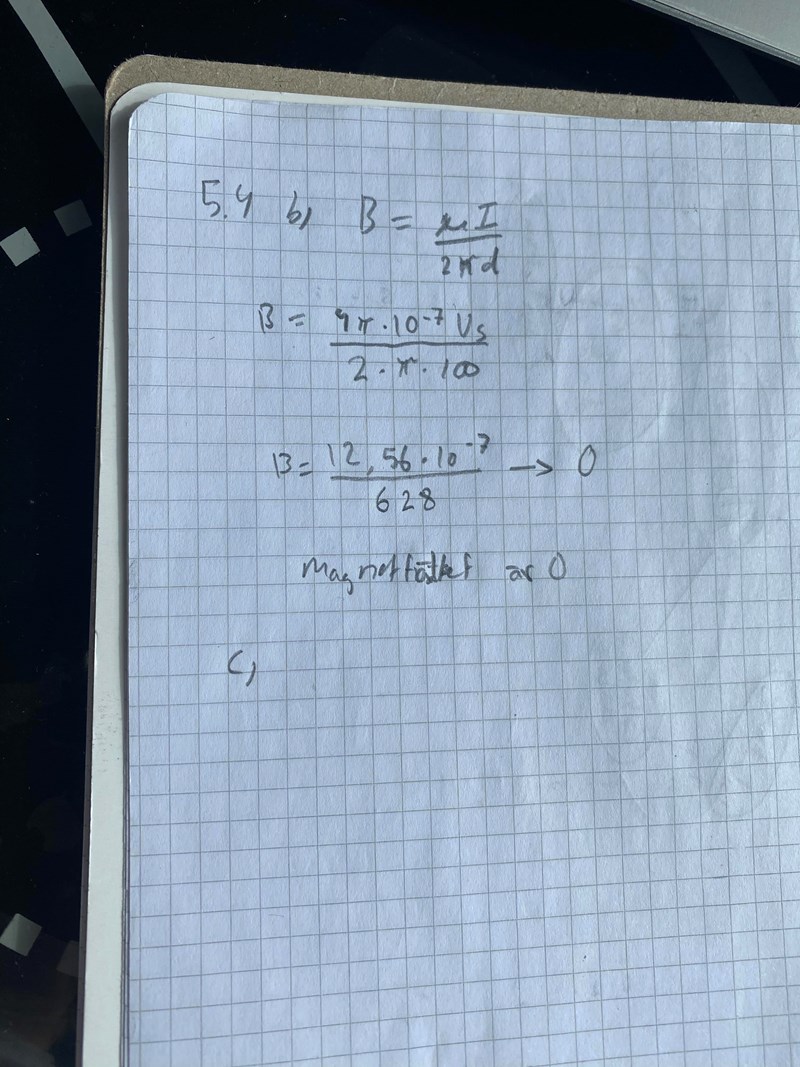 5.4 b) B = μI / 2πd
B = 4π·10⁻⁷ Vs / 2·π·100
B = 12,56·10⁻⁷ / 628 → 0
Magnetfältet är 0
c)